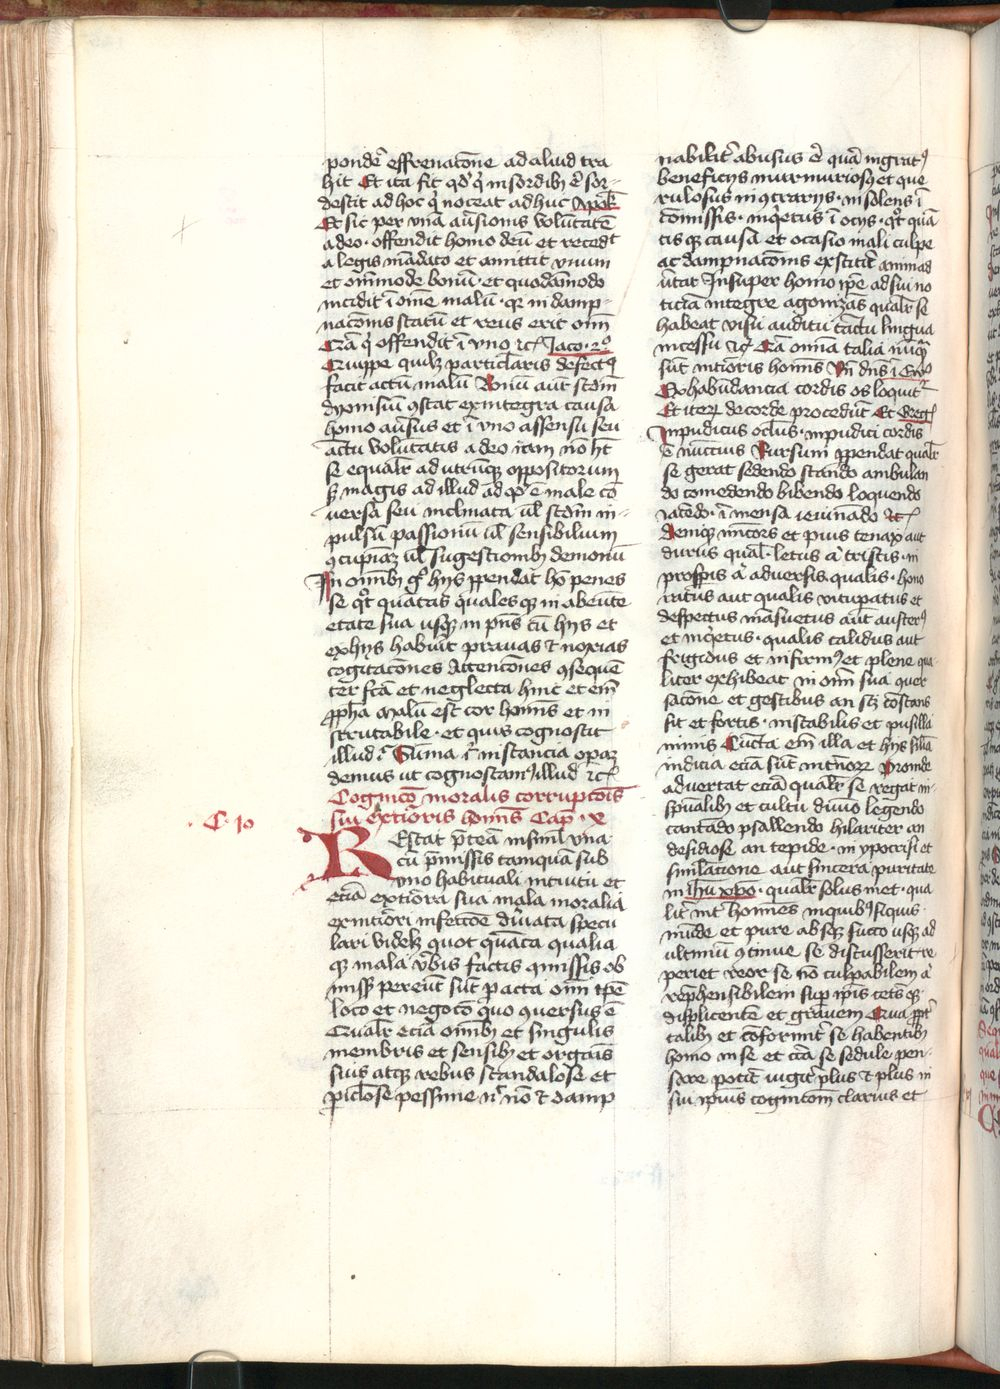 ponde effrenacone ad aliud tra
hit Et ita fit qd q in sordib3 e sor-
descit adhoc q noceat adhuc Apok
Et sic per vna auersionis voluntate
a deo · offendit homo deu et recedit
a legis mandato et amittit vnum
et omnimode bonu et quodamodo
incidit i ome malu · q in damp-
nacionis statu et reus erit oim
Cra q offendit i vno rc Jaco · 2o
Quippe quil3 particularis defectus
facit actu malu Bonu aut scdm
dyonisiu 9stat ex integra causa
homo auersus et i vno assensu seu
actu voluntatis a deo iam no ht
se equalr ad utruq oppositorum
s3 magis ad illud ad qd e male co
uersa seu inclinata ul scdm im-
pulsu passionu ul sensibilium
9cupiaz ul sugestionib3 demonu
In omib3 g hijs ppendat ho penes
se qt quatas quales q in abeunte
etate sua usq in pns cu hijs et
ex hijs habuit prauas et noxias
cogitacones Attencones 9sequen
ter fca et neglecta hinc et em
ppha Malu est cor hominis et in
scrutabile · et quis cognoscit
illud Suma instancia opam
demus ut cognoscam9 illud rc
Cognico moralis corrupcois
sui exterioris hominis Cap · x
· C · 10
REstat pterea insiml vna
cu pmissis tamquam sub
vno habituali intuitu et
ecia exteriora sua mala moralia
ex interiori infeccoe diuata specu
lari videl3 quot quanta qualia
q mala vbis factis 9missis ob
missis pereunt sunt pacta omi tpe
loco et negoco quo 9uersus e
Qualr ecia omib3 et singulis
membris et sensib3 et organis
suis atq rebus scandalose et
piclose pessime no et damp
nabilit abusus e qua ingrat9
beneficijs murmurios9 et que
rulosus in 9trarijs · insolens i
comissis · inquietus i ocijs · qt quan
tis q causa et ocasio mali culpe
ac dampnacionis exstitit animad
uertat Insuper homo ipe ad sui no
ticiam integre agonizas qualr se
habeat visu auditu tactu lingua
incessu rc Cra omia talia nuq
sut interioris hominis Vn dns i Ew
Ex habundancia cordis os loquit
Et iterum de corde procedut Et Greg
Impudicus oclus · impudici cordis
e nuncius Rursum ppendat qualr
se gerat sedendo stando ambulan
do comedendo bibendo loquendo
iacedo · i mensa ieiunado rc
Deniq imicors et pius tenax aut
durus qual · letus an tristis · in
prosperis an aduersis qualis · hono
ratus aut qualis vituperatus et
despectus mansuetus aut auster9
et inquietus · qualis calidus aut
frigidus et infirm9 et plene qua
liter exhibeat in omi sua conuer
sacone et gestibus an scz costans
sit et fortis · instabilis et pusilla
nimis Cuncta em illa et hijs similia
indicia ecia sut interiorum Proinde
aduertat ecia qualr se regat in
spualib3 et cultu diuino legendo
cantado psallendo hilariter an
desidiose an tepide · in ypocrisi et
similacione aut sincera puritate
in ihu xpo · qualr solus met · qua
litr int homines in quib9 siquis
munde et pure absq3 fucco usq3 ad
ultimu 9tinue se discusserit re
periet reor se no culpabilem an
reprehensibilem sup ipis
displicentem et grauem Qua ppt
talib3 et conformit se habentib3
homo in se et cra se sedule pen-
sare poterit iugit plus et plus in
sui ipius cognicom clarius et